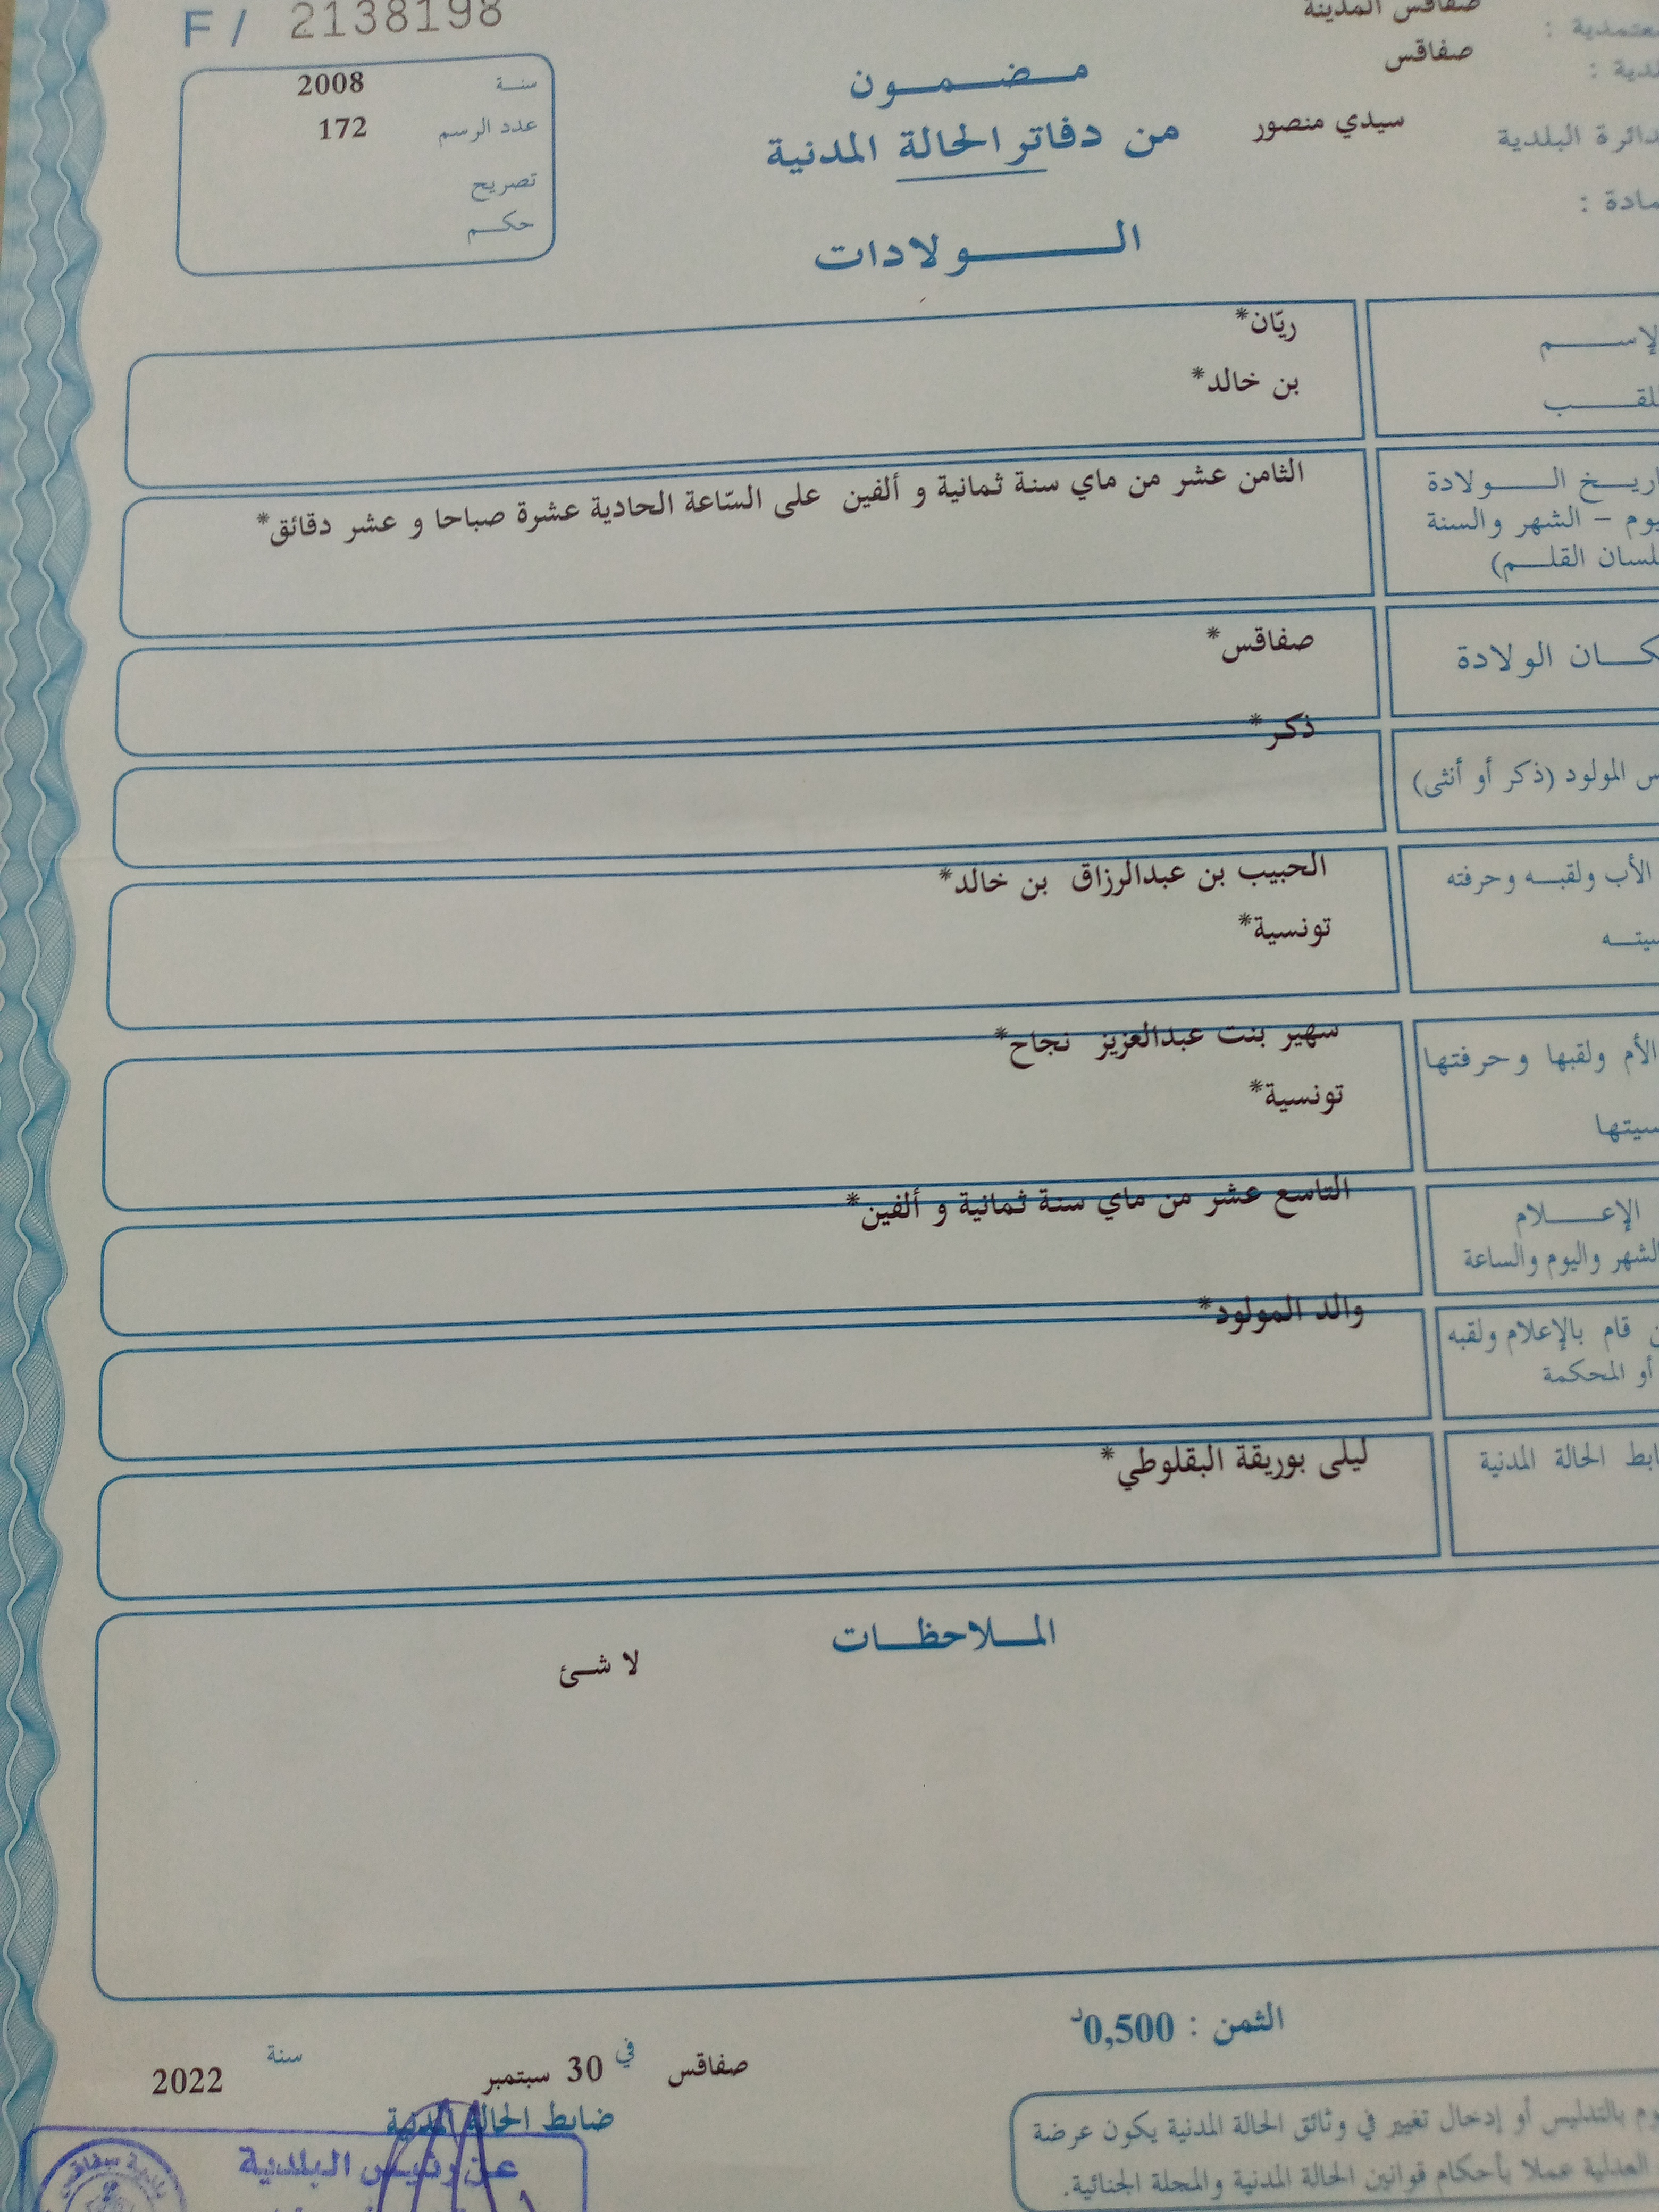 F / 2138198
سنة 2008
عدد الرسم 172
تصريح
حكم
صفاقس المدينة
صفاقس
سيدي منصور
مضمون
من دفاتر الحالة المدنية
الولادات
ريّان*
بن خالد*
الثامن عشر من ماي سنة ثمانية و ألفين على السّاعة الحادية عشرة صباحا و عشر دقائق*
الولادة
الشهر والسنة
القلم)
صفاقس*
الولادة
ذكر*
المولود (ذكر أو أنثى)
الحبيب بن عبدالرزاق بن خالد*
الأب ولقبه وحرفته
تونسية*
سهير بنت عبدالعزيز نجاح*
الأم ولقبها وحرفتها
تونسية*
التاسع عشر من ماي سنة ثمانية و ألفين*
الإعلام
واليوم والساعة
والد المولود*
قام بالإعلام ولقبه
أو المحكمة
ليلى بوريقة البقلوطي*
الحالة المدنية
الملاحظات
لا شئ
الثمن : 0,500د
صفاقس في 30 سبتمبر سنة 2022
ضابط الحالة المدنية
عن رئيس البلدية
بالتدليس أو إدخال تغيير في وثائق الحالة المدنية يكون عرضة
العدلية عملا بأحكام قوانين الحالة المدنية والمجلة الجنائية.